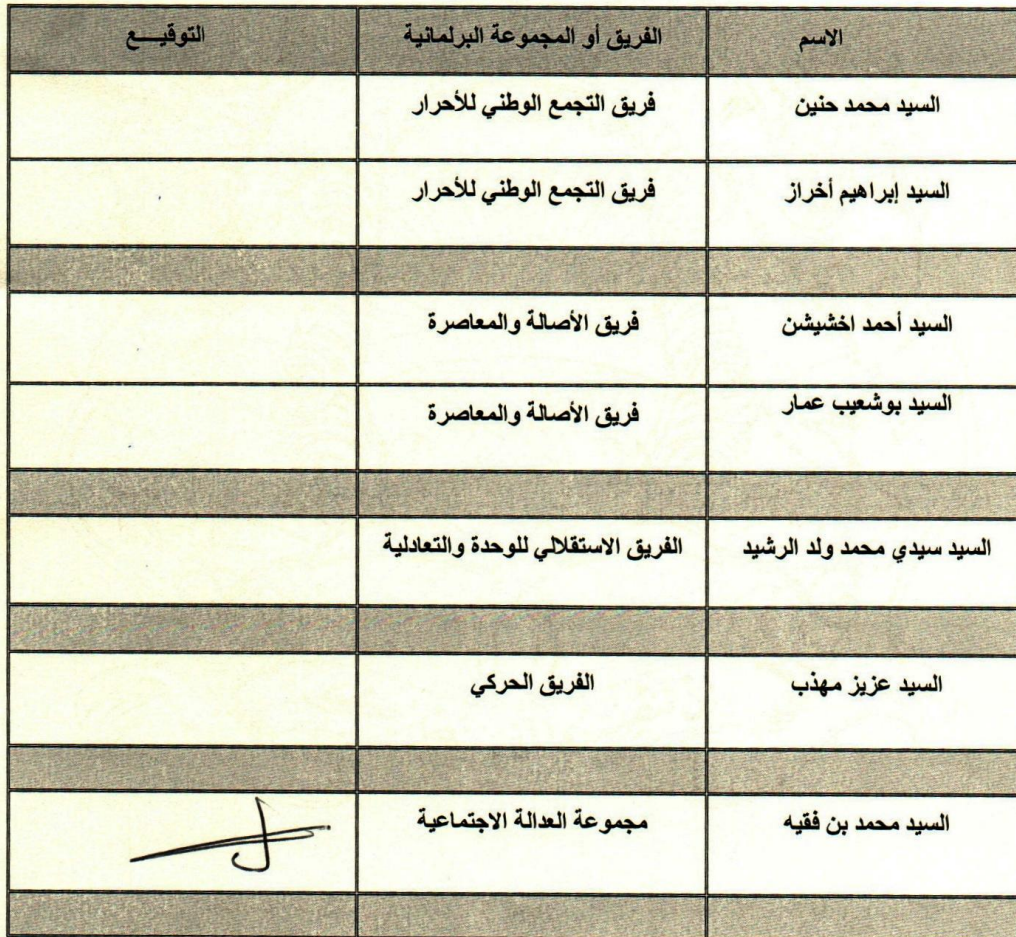 الاسم الفريق أو المجموعة البرلمانية التوقيـــع
السيد محمد حنين فريق التجمع الوطني للأحرار
السيد إبراهيم أخراز فريق التجمع الوطني للأحرار
السيد أحمد اخشيشن فريق الأصالة والمعاصرة
السيد بوشعيب عمار فريق الأصالة والمعاصرة
السيد سيدي محمد ولد الرشيد الفريق الاستقلالي للوحدة والتعادلية
السيد عزيز مهذب الفريق الحركي
السيد محمد بن فقيه مجموعة العدالة الاجتماعية